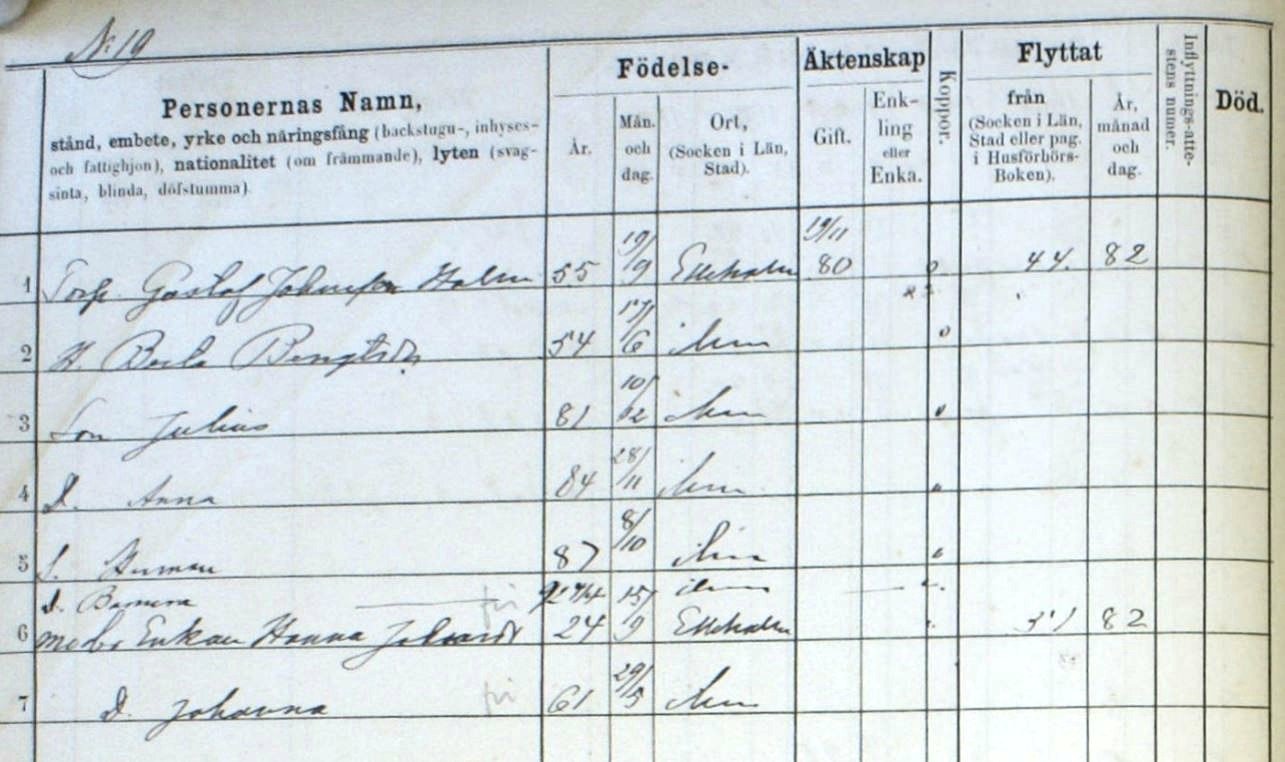 N: 19
Personernas Namn,
stånd, embete, yrke och näringsfång (backstugu-, inhyses-
och fattighjon), nationalitet (om främmande), lyten (svag-
sinta, blinda, döfstumma).
Födelse-
År.
Mån.
och
dag.
Ort,
(Socken i Län,
Stad).
Äktenskap
Gift.
Enk-
ling
eller
Enka.
Koppor.
Flyttat
från
(Socken i Län,
Stad eller pag.
i Husförhörs-
Boken).
År,
månad
och
dag.
Inflyttnings-atte-
stens numer.
Död.
1 Torp. Gustaf Johnsson Holm 55 19/9 Elleholm 19/11 80 44. 82
2 H. Berta Bengtsdr 54 17/6 ibm
3 Son Julius 81 10/12 ibm
4 D. Anna 84 28/11 ibm
5 S. Herman 87 8/10 ibm
D. ibm
6 Enkan Hanna 24 15/9 Elleholm 82
7 D. Johanna 61 29/5 ibm